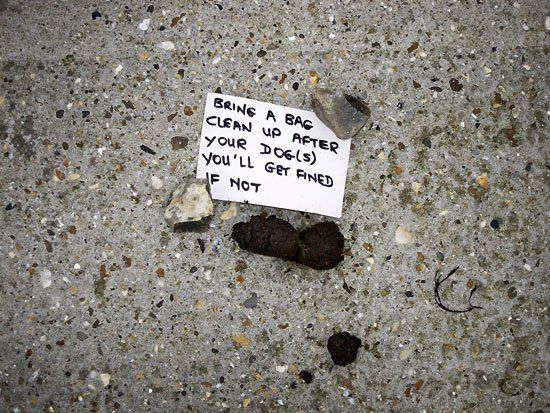 BRING A BAG
CLEAN UP AFTER
YOUR DOG(S)
YOU'LL GET FINED
IF NOT